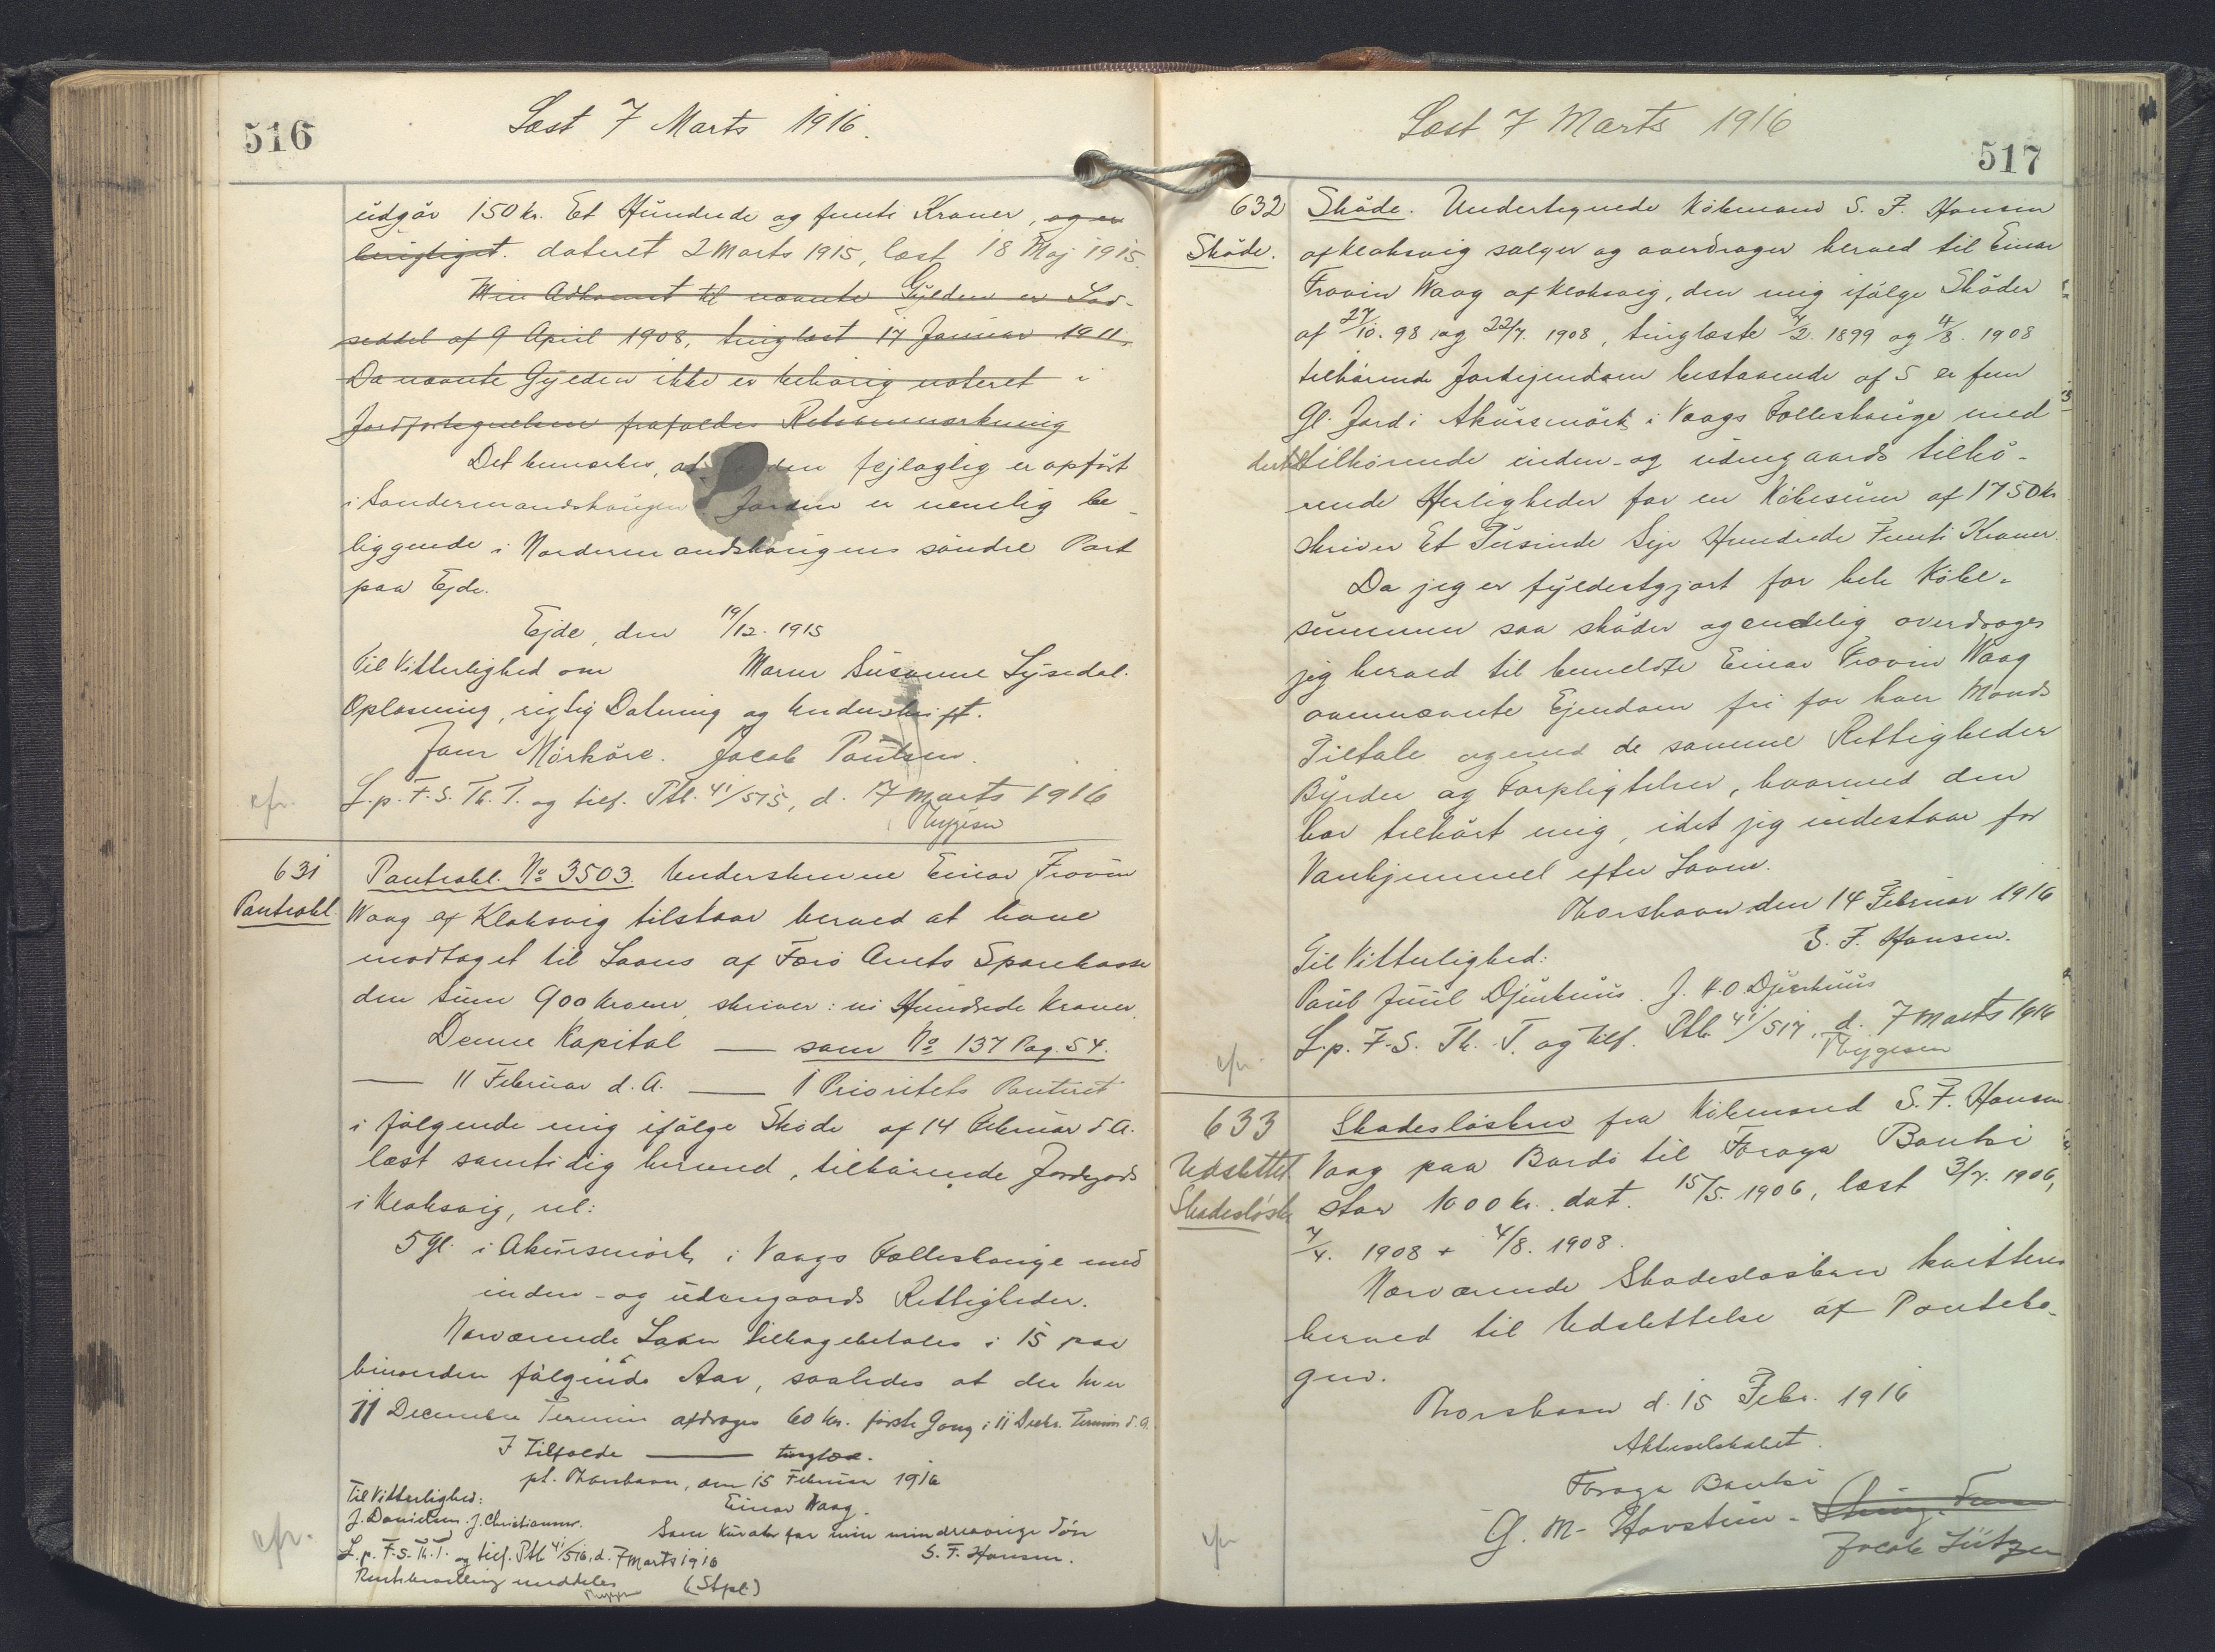 516
Læst 7 Marts 1916.
udgår 150 kr. Et Hundrede og femti Kroner, og er
berigtiget. dateret 2 Marts 1915, læst 18 Maj 1915.
Min Adkomst til nævnte Gylden er Lod-
seddel af 9 April 1908, tinglæst 17 Januar 1911,
Da nævnte Gylden ikke er behörig noteret i
Jordfortegnelsen frafaldes Retsanmærkning
Det bemærkes, at Jorden fejlagtig er opfört
i Sondermandshaugen. Jorden er nemlig be-
liggende i Nordermandshaugens söndre Part
paa Ejde.
Ejde, den 19/12. 1915
Til Vitterlighed om Maren Susanne Lysedal.
Oplæsning, rigtig Datering og Underskrift.
Jens Mörköre. Jacob Poulsen.
cfr. L. p. F. S. Th. T. og tilf. Ptb. 41/515, d. 7 Marts 1916
Thygesen
631 Panteobl. No 3503. Underskrevne Einar Frovin
Panteobl. Waag af Klaksvig tilstaar herved at have
modtaget til Laans af Færö Amts Sparekasse
den Sum 900 Kroner, skriver: ni Hundrede Kroner.
Denne Kapital — som No 137 Pag. 54.
— 11 Februar d. A. — 1 Prioritets Panteret
i fölgende mig ifölge Sköde af 14 Februar d. A.
læst samtidig hermed, tilhörende Jordegods
i Klaksvig, vel:
5 Gl. i Akursmörk i Vaags Fælleshauge med
inden- og udengaards Rettigheder.
Nærværende Laan tilbagebetales i 15 paa
hinanden fölgende Aar, saaledes at der hver
11 Decembr. Termin afdrages 60 kr. förste Gang i 11 Decbr. Termin d. A.
I Tilfælde — tinglæs.
pt. Thorshavn, den 15 Februar 1916
Til Vitterlighed: Einar Waag.
J. Danielsen. J. Christiansen. Som Kurator for min mindreaarige Sön
S. F. Hansen.
cfr. L. p. F. S. Th. T. og tilf. Ptb 41/516, d. 7 Marts 1916
meddeles (Stpl.)
Thygesen
Læst 7 Marts 1916
517
632 Sköde. Undertegnede Köbmand S. F. Hansen
Sköde. af Klaksvig sælger og overdrager herved til Einar
Frovin Waag af Klaksvig, den mig ifölge Sköder
af 27/10. 98 og 22/7. 1908, tinglæste 7/2. 1899 og 4/8. 1908
tilhörende Jordejendom bestaaende af 5 er fem
Gl. Jord i Akursmörk i Vaags Fælleshauge med
dertil tilhörende inden- og udengaards tilhö-
rende Herligheder for en Köbesum af 1750 Kr
skriver Et Tusinde Syv Hundrede Femti Kroner.
Da jeg er fyldestgjort for hele Köbe-
summen saa sköder og endelig overdrager
jeg herved til bemeldte Einar Frovin Waag
ovennævnte Ejendom fri for hver Mands
Tiltale og med de samme Rettigheder
Byrder og Forpligtelser, hvormed den
har tilhört mig, idet jeg indestaar for
Vanhjemmel efter Loven.
Thorshavn den 14 Februar 1916
S. F. Hansen.
Til Vitterlighed:
Poul Juul Djurhuus. J. H. O. Djurhuus
cfr. L. p. F. S. Th. T. og tilf. Ptb. 41/517, d. 7 Marts 1916
Thygesen
633 Skadeslösbrev fra Köbmand S. F. Hansen
Udslettet Vaag paa Bordö til Föroya Banki
Skadeslösbr stor 1000 kr. dat. 15/5. 1906, læst 3/7. 1906,
7/4. 1908 + 4/8. 1908.
Nærværende Skadeslösbrev kvitteres
herved til Udslettelse af Pantebö-
gerne.
Thorshavn d. 15 Febr. 1916
Aktieselskabet
Föroya Banki
cfr G. M- Havsteen-
Jacob Lützen